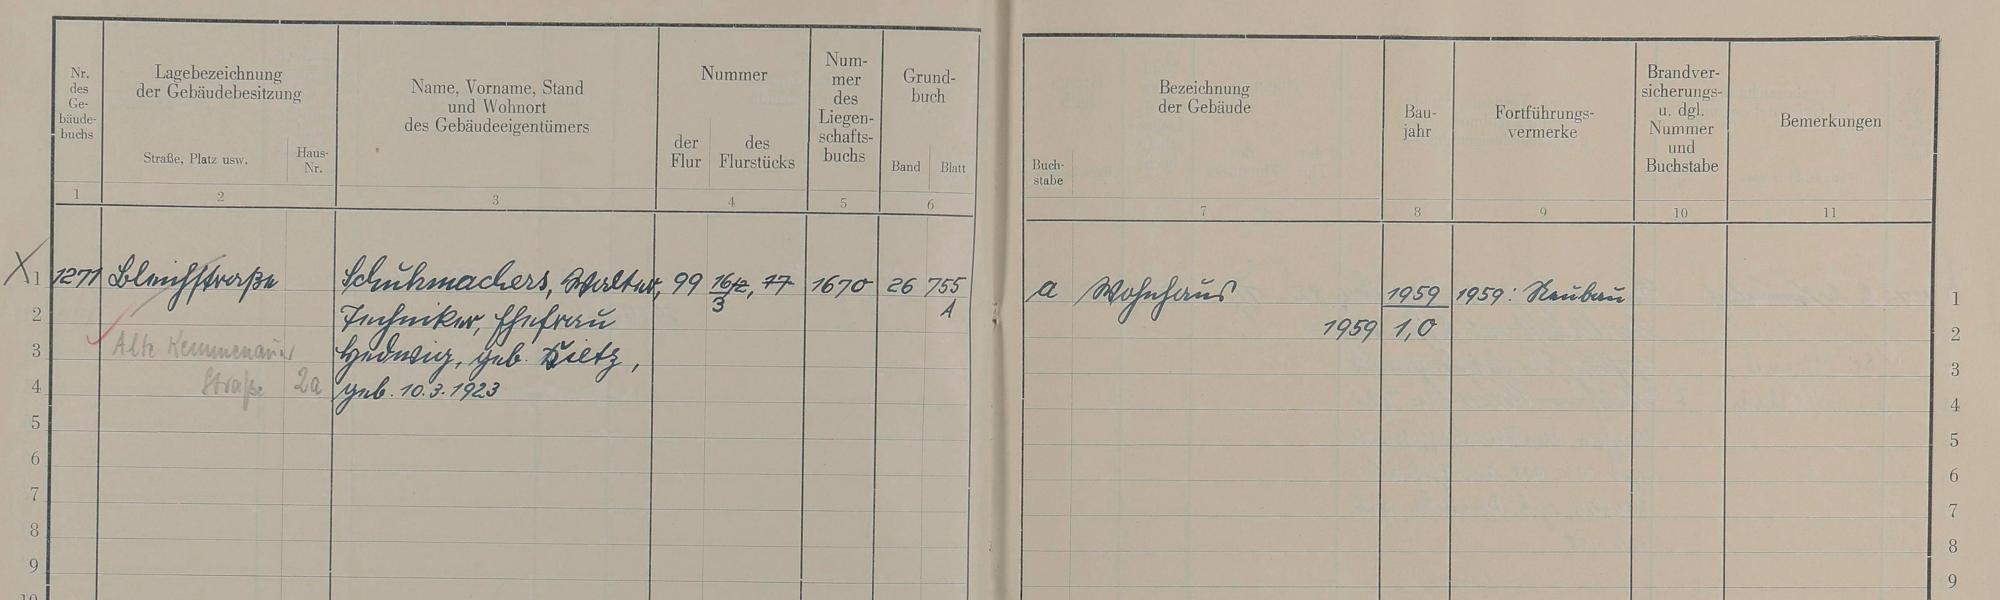 Nr.
des
Ge-
bäude-
buchs
Lagebezeichnung
der Gebäudebesitzung
Straße, Platz usw.
Haus-
Nr.
Name, Vorname, Stand
und Wohnort
des Gebäudeeigentümers
Nummer
der
Flur
des
Flurstücks
Num-
mer
des
Liegen-
schafts-
buchs
Grund-
buch
Band
Blatt
1 2 3 4 5 6
Bezeichnung
der Gebäude
Buch-
stabe
Bau-
jahr
Fortführungs-
vermerke
Brandver-
sicherungs-
u. dgl.
Nummer
und
Buchstabe
Bemerkungen
7 8 9 10 11
X 1 1271 Bleichstraße Schuhmachers, Walter, 99 16/3, 77 1670 26 755 a Wohnhaus 1959 1959: Neubau 1
2 Techniker, Ehefrau A 1959 1,0 2
3 Alte Kemmenauer Hedwig, geb. Dietz, 3
4 Straße 2a geb. 10.3.1923 4
5 5
6 6
7 7
8 8
9 9
10